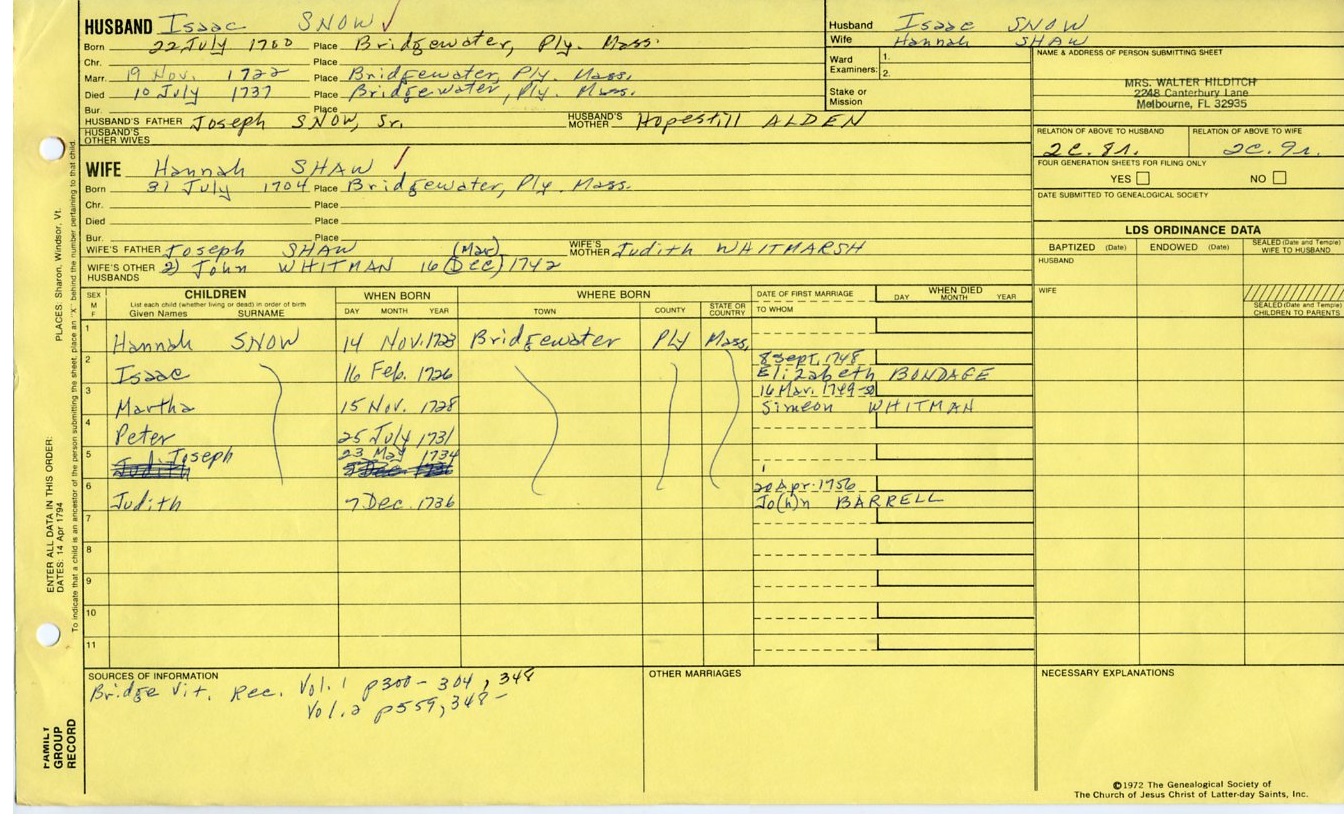 HUSBAND Isaac SNOW ✓
Born 22 July 1700 Place Bridgewater, Ply. Mass.
Chr. Place
Marr. 19 Nov. 1722 Place Bridgewater, Ply. Mass.
Died 10 July 1737 Place Bridgewater, Ply. Mass.
Bur. Place
HUSBAND'S FATHER Joseph SNOW, Sr. HUSBAND'S MOTHER Hopestill ALDEN
HUSBAND'S OTHER WIVES
WIFE Hannah SHAW ✓
Born 31 July 1704 Place Bridgewater, Ply. Mass.
Chr. Place
Died Place
Bur. Place
WIFE'S FATHER Joseph SHAW WIFE'S MOTHER Judith WHITMARSH
(Mar)
WIFE'S OTHER HUSBANDS 2) John WHITMAN 16 (Dec) 1742
Husband Isaac SNOW
Wife Hannah SHAW
Ward Examiners: 1.
2.
Stake or Mission
NAME & ADDRESS OF PERSON SUBMITTING SHEET
MRS. WALTER HILDITCH
2248 Canterbury Lane
Melbourne, FL 32935
RELATION OF ABOVE TO HUSBAND RELATION OF ABOVE TO WIFE
2c. 8r. 2c. 9r.
FOUR GENERATION SHEETS FOR FILING ONLY
YES NO
DATE SUBMITTED TO GENEALOGICAL SOCIETY
LDS ORDINANCE DATA
BAPTIZED (Date) ENDOWED (Date) SEALED (Date and Temple) WIFE TO HUSBAND
HUSBAND
WIFE
SEALED (Date and Temple) CHILDREN TO PARENTS
SEX M F CHILDREN WHEN BORN WHERE BORN DATE OF FIRST MARRIAGE WHEN DIED
List each child (whether living or dead) in order of birth
Given Names SURNAME DAY MONTH YEAR TOWN COUNTY STATE OR COUNTRY TO WHOM DAY MONTH YEAR
1 Hannah SNOW 14 Nov. 1723 Bridgewater Ply Mass.
2 Isaac 16 Feb. 1726 8 Sept. 1748
Elizabeth BONDAGE
3 Martha 15 Nov. 1728 16 Mar. 1749-50
Simeon WHITMAN
4 Peter 25 July 1731
5 Joseph 23 May 1734
Judith
6 Judith 7 Dec. 1736 20 Apr. 1756
Jo(h)n BARRELL
7
8
9
10
11
SOURCES OF INFORMATION
Bridge Vit. Rec. Vol. 1 p300-304, 348
Vol. 2 p559, 348-
OTHER MARRIAGES
NECESSARY EXPLANATIONS
©1972 The Genealogical Society of
The Church of Jesus Christ of Latter-day Saints, Inc.
PLACES: Sharon, Windsor, Vt.
ENTER ALL DATA IN THIS ORDER:
DATES: 14 Apr 1794
To indicate that a child is an ancestor of the person submitting the sheet, place an "X" behind the number pertaining to that child.
FAMILY
GROUP
RECORD